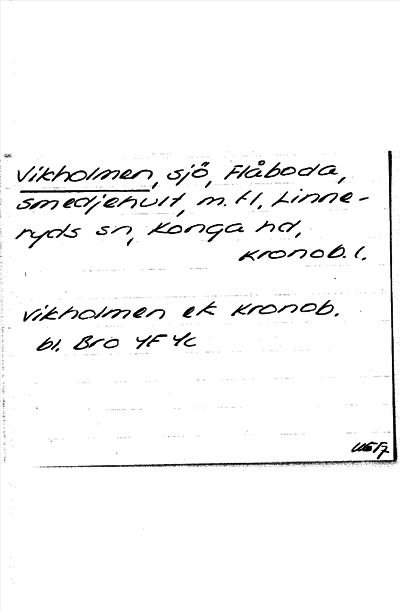 Vikholmen, sjö, Flåboda,
Smedjehult, m. fl, Linne-
ryds sn, Konga hd,
Kronob. l.
Vikholmen ek Kronob.
bl. Bro 4F 4c